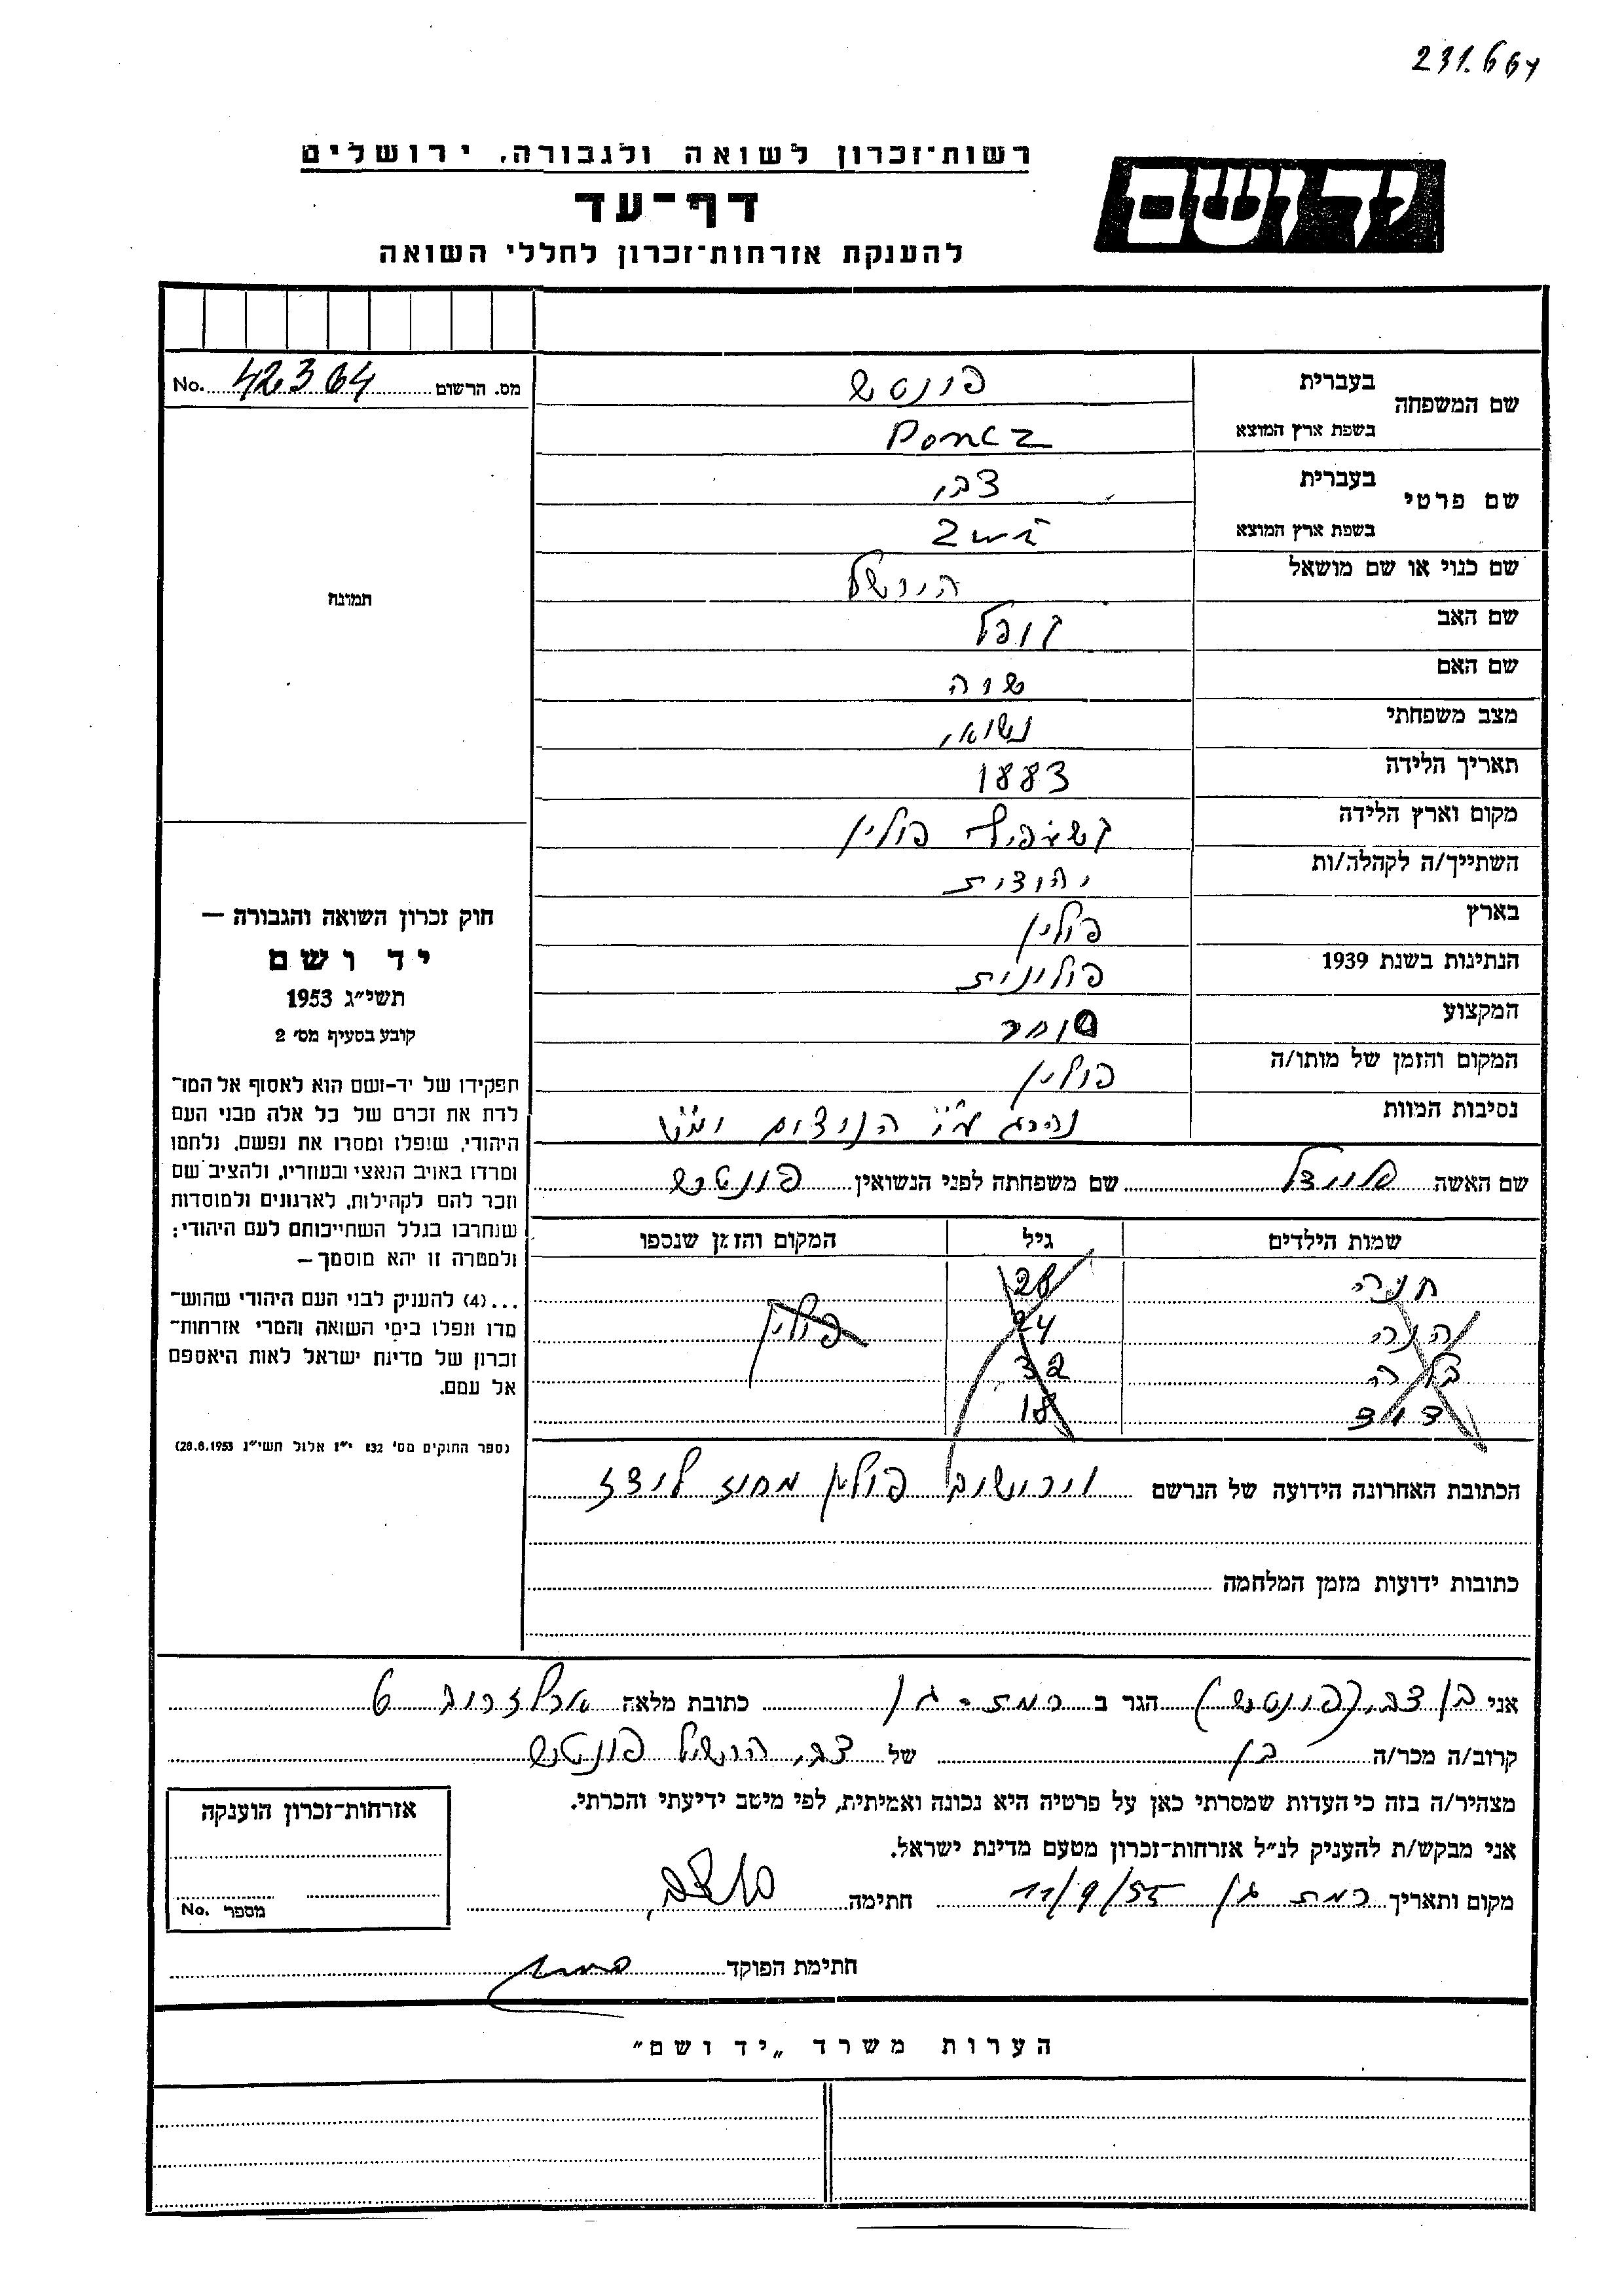 231.664
רשות־זכרון לשואה ולגבורה, ירושלים
יד ושם
דף־עד
להענקת אזרחות־זכרון לחללי השואה
מס. הרשום 42364 No.
שם המשפחה
בעברית פונטש
בשפת ארץ המוצא
שם פרטי
בעברית צבי
בשפת ארץ המוצא
שם כנוי או שם מושאל הירשל
שם האב קופל
שם האם שרה
מצב משפחתי נשואי
תאריך הלידה 1883
מקום וארץ הלידה פולין
השתייך/ה לקהלה/ות יהודית
בארץ פולין
הנתינות בשנת 1939 פולונית
המקצוע סוחר
המקום והזמן של מותו/ה פולין
נסיבות המוות נהרג ע"י הנוצרים ימ"ש
שם האשה פריידל שם משפחתה לפני הנשואין פונטש
שמות הילדים גיל המקום והזמן שנספו
חנה 28
24 פולין
32
דוד 18
הכתובת האחרונה הידועה של הנרשם פולין מחוז לודז
כתובות ידועות מזמן המלחמה
תמונה
חוק זכרון השואה והגבורה —
יד ושם
תשי״ג 1953
קובע בסעיף מס׳ 2
תפקידו של יד-ושם הוא לאסוף אל המו־
לדת את זכרם של כל אלה מבני העם
היהודי, שנפלו ומסרו את נפשם, נלחמו
ומרדו באויב הנאצי ובעוזריו, ולהציב שם
וזכר להם לקהילות, לארגונים ולמוסדות
שנחרבו בגלל השתייכותם לעם היהודי;
ולמטרה זו יהא מוסמך—
...(4) להעניק לבני העם היהודי שהוש־
מדו ונפלו בימי השואה והמרי אזרחות־
זכרון של מדינת ישראל לאות היאספם
אל עמם.
(ספר החוקים מס׳ 132 י״ז אלול תשי״ג 28.8.1953)
אני בן צבי (פונטש) הגר ב רמת-גן כתובת מלאה ארלוזרוב 6
קרוב/ה מכר/ה בן של צבי הרשל פונטש
מצהיר/ה בזה כי העדות שמסרתי כאן על פרטיה היא נכונה ואמיתית, לפי מיטב ידיעתי והכרתי.
אני מבקש/ת להעניק לנ״ל אזרחות־זכרון מטעם מדינת ישראל.
מקום ותאריך רמת גן 11/9/55 חתימה בן צבי
חתימת הפוקד
אזרחות־זכרון הוענקה
מספר No.
הערות משרד „יד ושם״